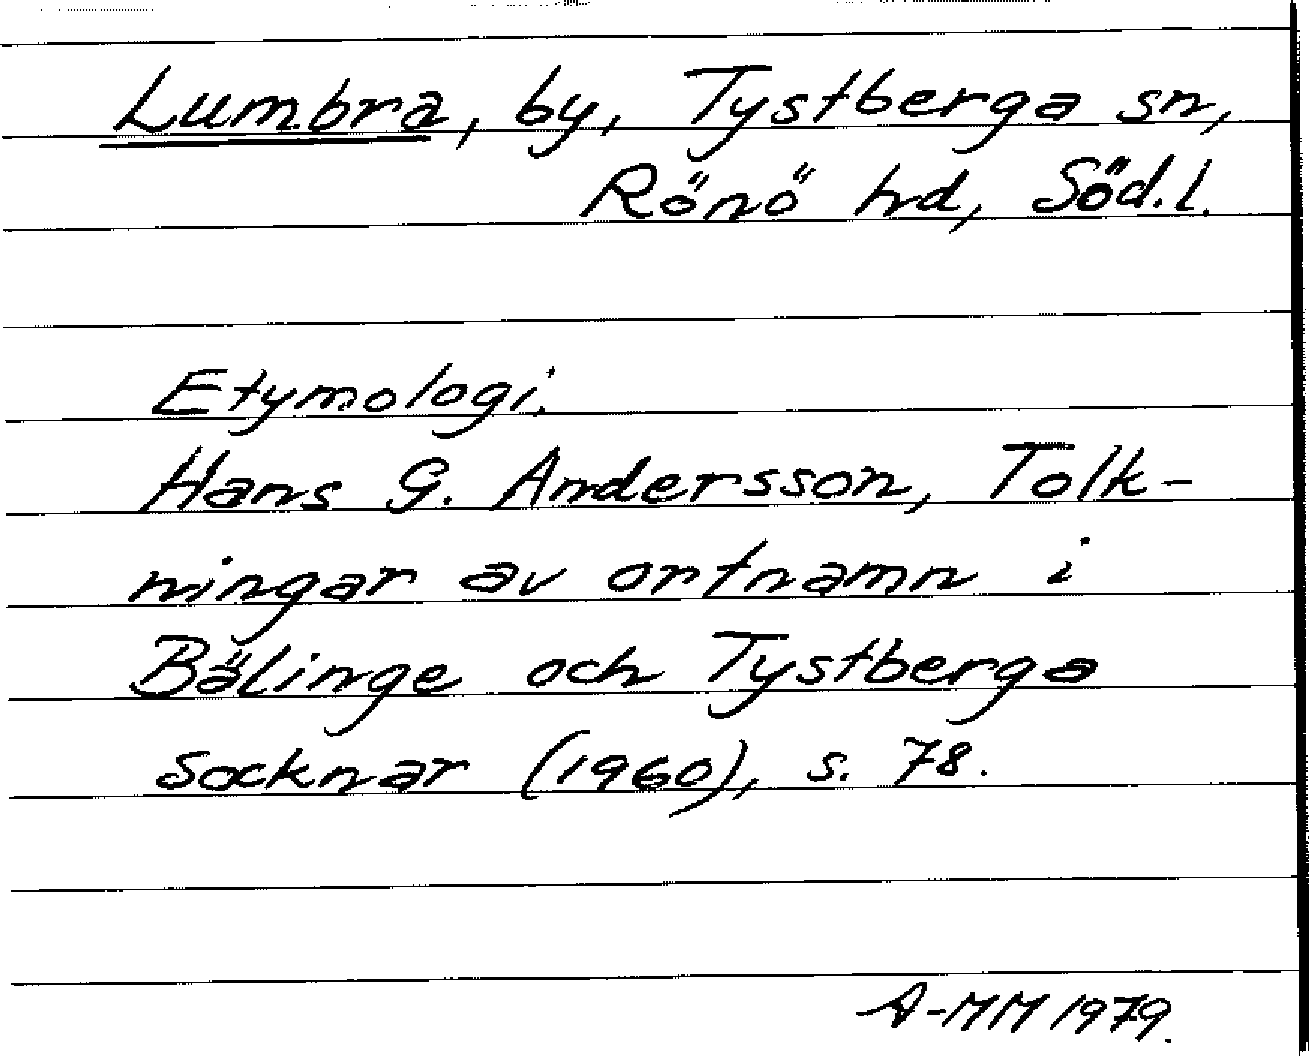 Lumbra, by, Tystberga sn,
Rönö hd, Söd.l.
Etymologi.
Hans G. Andersson, Tolk-
ningar av ortnamn i
Bälinge och Tystberga
socknar (1960), s. 78.
A-MM 1979.